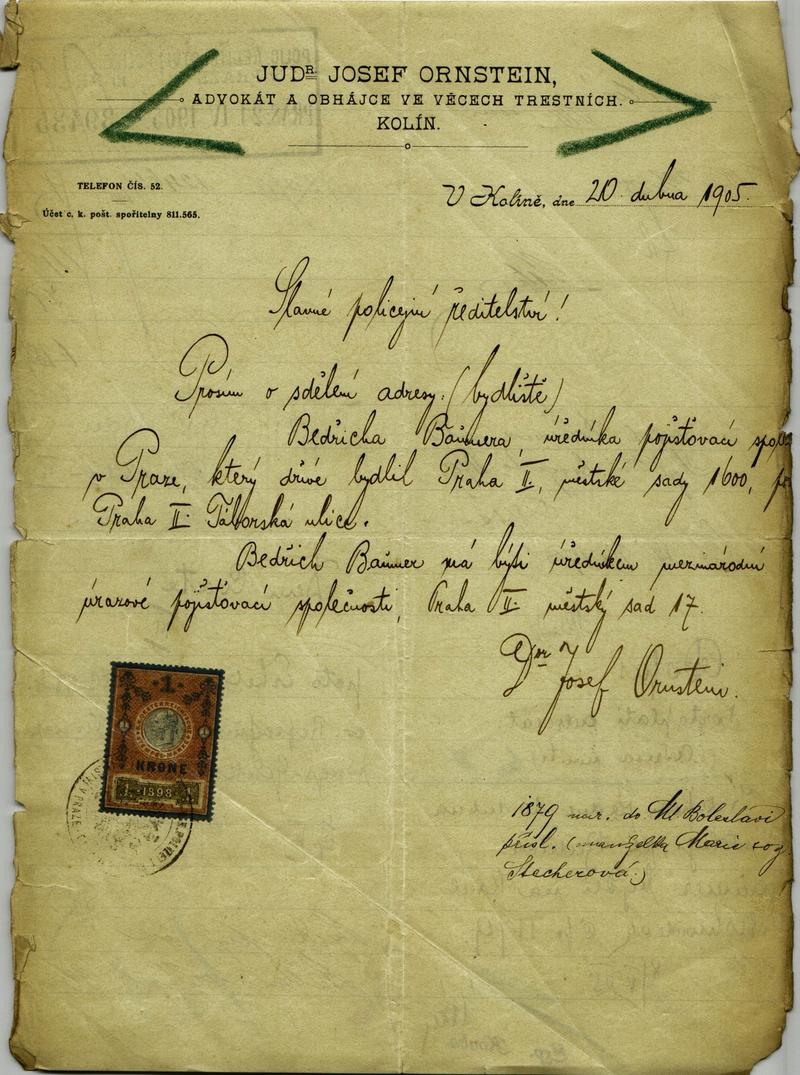 JUDR. JOSEF ORNSTEIN,
ADVOKÁT A OBHÁJCE VE VĚCECH TRESTNÍCH.
KOLÍN.
TELEFON ČÍS. 52.
Účet c. k. pošt. spořitelny 811.565.
V Kolíně, dne 20. dubna 1905.
Slavné policejní ředitelství!
Prosím o sdělení adresy (bydliště)
Bedřicha Baumera, úředníka pojišťovací
v Praze, který dříve bydlil Praha II, městské sady 1600,
Praha II. Táborská ulice.
Bedřich Baumer má býti úředníkem mezinárodní
úrazové pojišťovací společnosti, Praha II. městský sad 17.
Dr Josef Ornstein.
1
KRONE
1898
1879 nar. do Ml Boleslavi
přísl. Marie roz
Stecherová)